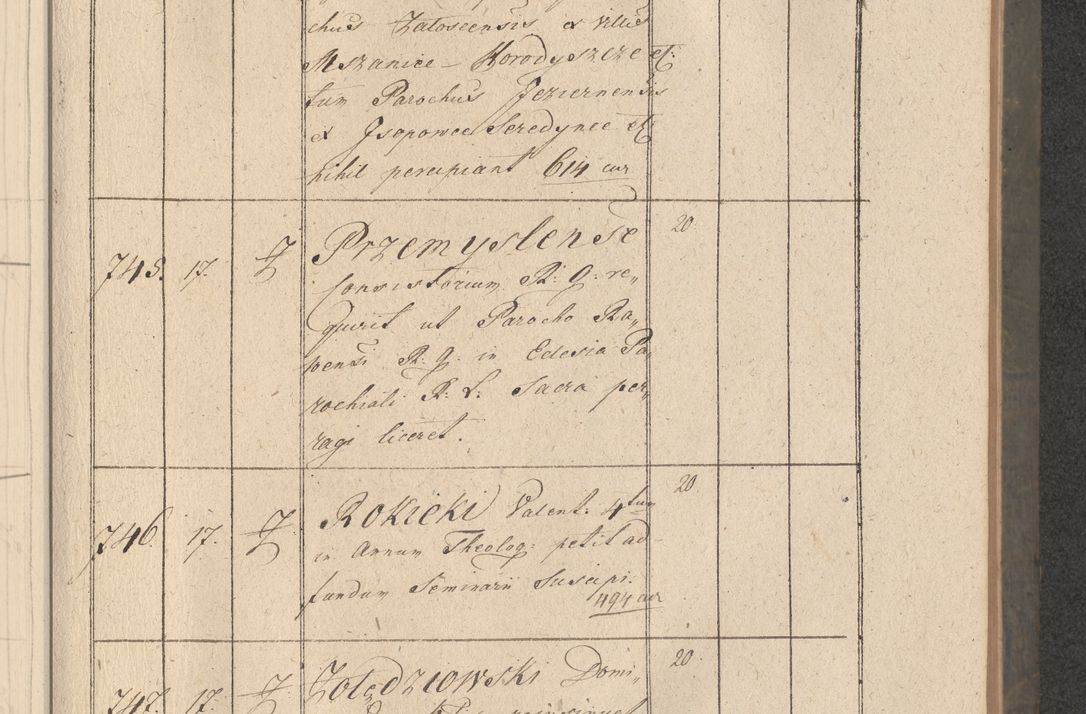 chus Zaloscensis ex villis
Mszanice – Horodyszcze etc:
tum Parochus Jeziernensis
ex Isopowce Seredynce etc
nihil percipiant 614 cur
745. 17. Z Przemyslense 20
Consistorium R: G. re„
quirit ut Parocho Ra„
pensi R. G. in Eclesia Pa„
rochiali R. L. Sacra per„
ragi liceret.
746. 17. Z Rokicki Valent. 4tum 20
in Annum Theolog: petit ad
fundum Seminarii Suscipi.
494 cur
747. 17. Z Żołędziowski Domi„ 20